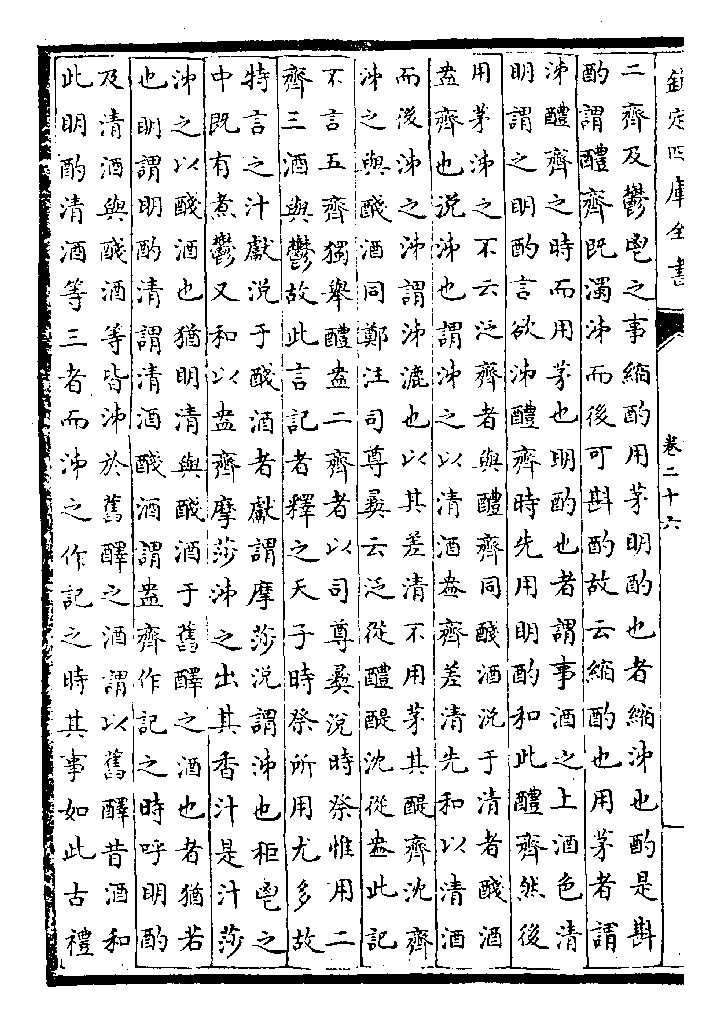 欽定四庫全書
卷二十六
二齊及鬱鬯之事縮酌用茅明酌也者縮泲也酌是斟
酌謂醴齊既濁泲而後可斟酌故云縮酌也用茅者謂
泲醴齊之時而用茅也明酌也者謂事酒之上酒色清
明謂之明酌言欲泲醴齊時先用明酌和此醴齊然後
用茅泲之不云泛齊者與醴齊同醆酒涚于清者醆酒
盎齊也説泲也謂泲之以清酒盎齊差清先和以清酒
而後泲之泲謂泲漉也以其差清不用茅其醍齊沈齊
泲之與醆酒同鄭注司尊彞云泛從醴醍沈從盎此記
不言五齊獨舉醴盎二齊者以司尊彞説時祭惟用二
齊三酒與鬱故此言記者釋之天子時祭所用尤多故
特言之汁獻涚于醆酒者獻謂摩莎涚謂泲也秬鬯之
中既有煮鬱又和以盎齊摩莎泲之出其香汁是汁莎
泲之以醆酒也猶明清與醆酒于舊醳之酒也者猶若
也明謂明酌清謂清酒醆酒謂盎齊作記之時呼明酌
及清酒與醆酒等皆泲於舊醳之酒謂以舊醳昔酒和
此明酌清酒等三者而泲之作記之時其事如此古禮